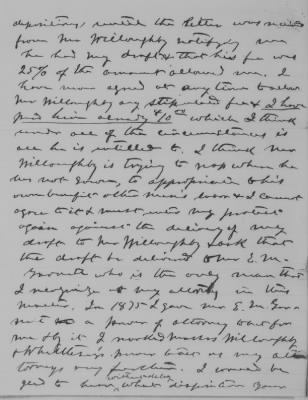 depository until the letter was received
from Mr Willoughby notifying me
he had my draft & that his fee was
25% of the amount allowed me. I
have never agreed at any time to allow
Mr Willoughby any stipulated fee & I have
paid him already $10.00 which I think
under all of the circumstances is
all he is intitled to. I think Mr
Willoughby is trying to reap where he
has not sown, to appropriate to his
own benefit other men's labor & I cannot
agree to it & must enter my protest
again against the delivery of my
draft to Mr Willoughby & ask that
the draft be delivered to Mr E. M.
who is the only man that
I recognize as my attorney in this
matter. In 1875 I gave Mr E. M. Gar-
nett a power of attorney to act for
me & by it I revoked Messrs Willoughby
& power to act as my attor-
torneys any further. I would be
glad to know without delay what disposition your